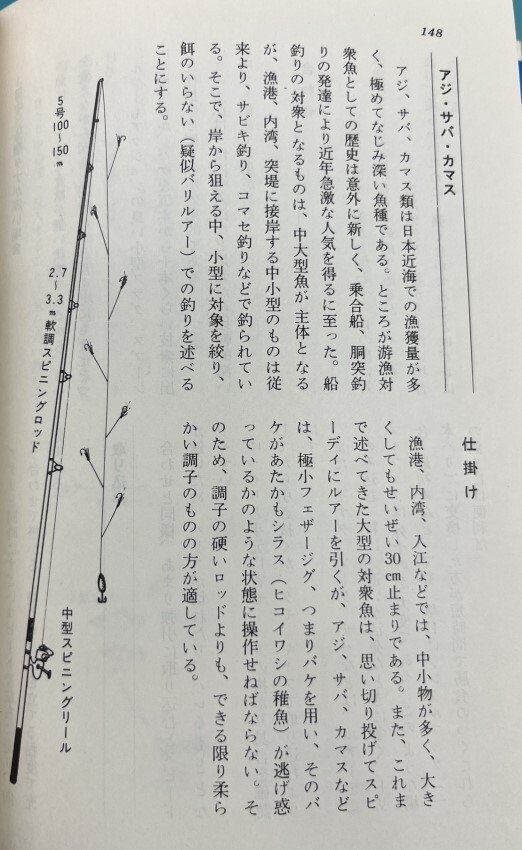 148
アジ・サバ・カマス
アジ、サバ、カマス類は日本近海での漁獲量が多
く、極めてなじみ深い魚種である。ところが游漁対
衆魚としての歴史は意外に新しく、乗合船、胴突釣
りの発達により近年急激な人気を得るに至った。船
釣りの対衆となるものは、中大型魚が主体となる
が、漁港、内湾、突堤に接岸する中小型のものは従
来より、サビキ釣り、コマセ釣りなどで釣られてい
る。そこで、岸から狙える中、小型に対象を絞り、
餌のいらない（疑似バリルアー）での釣りを述べる
ことにする。
仕掛け
漁港、内湾、入江などでは、中小物が多く、大き
くしてもせいぜい30cm止まりである。また、これま
で述べてきた大型の対衆魚は、思い切り投げてスピ
ーディにルアーを引くが、アジ、サバ、カマスなど
は、極小フェザージグ、つまりバケを用い、そのバ
ケがあたかもシラス（ヒコイワシの稚魚）が逃げ惑
っているかのような状態に操作せねばならない。そ
のため、調子の硬いロッドよりも、できる限り柔ら
かい調子のものの方が適している。
5号100〜150m
2.7〜3.3m軟調スピニングロッド
中型スピニングリール